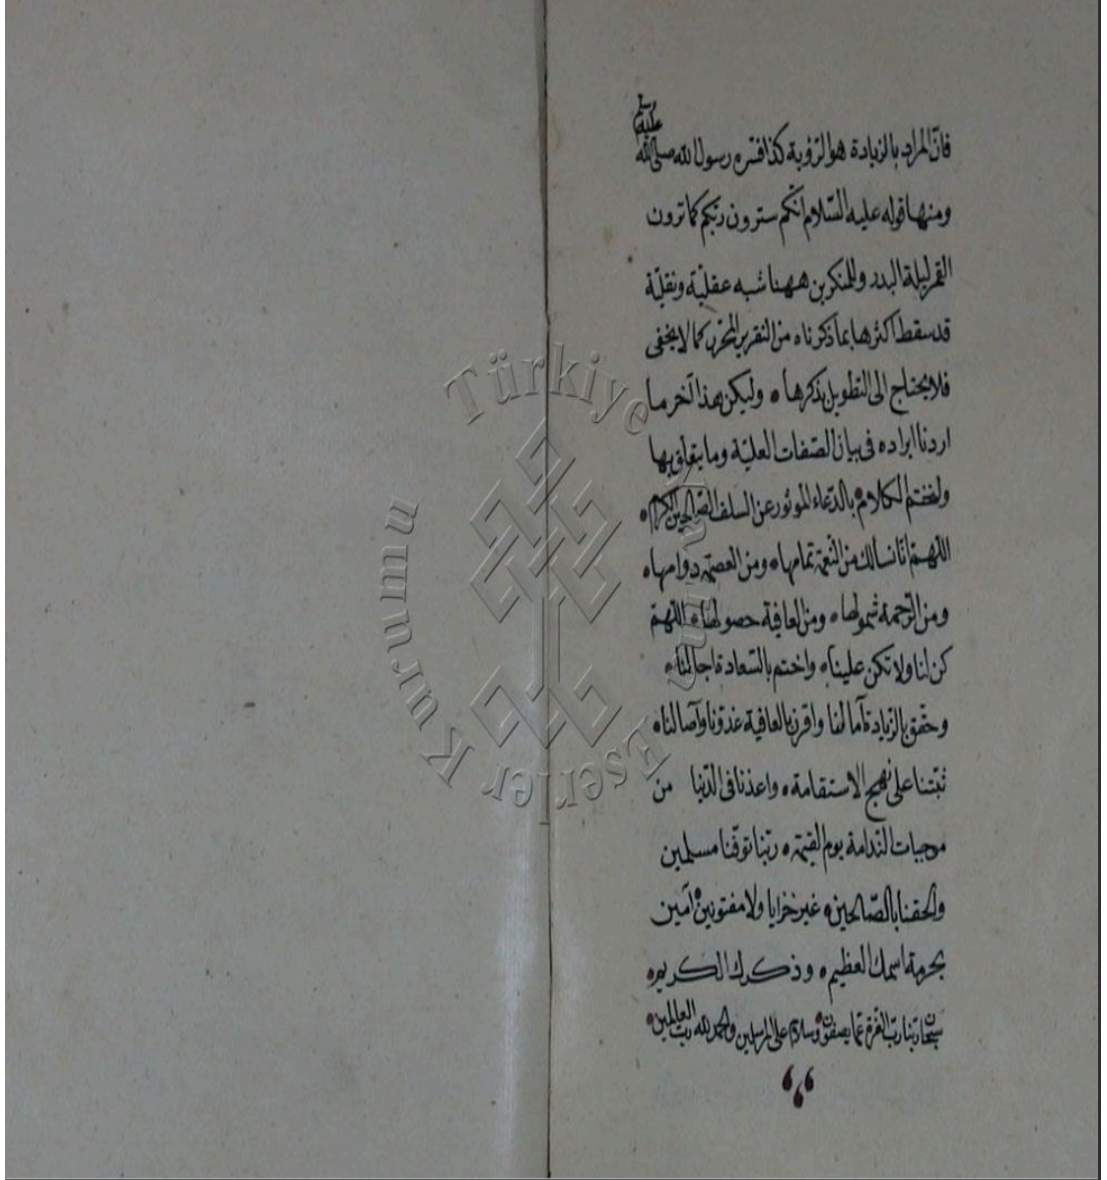 فانّ المراد بالزيادة هو الرّؤية كذا فسّره رسول الله صلّى الله عليه وسلم
ومنها قوله عليه السّلام انّكم سترون ربّكم كما ترون
القمر ليلة البدر وللمنكرين ههنا شبه عقليّة ونقليّة
قد سقط اكثرها بما ذكرناه من التقرير المحرّر كما لا يخفى
فلا يحتاج الى التطويل بذكرها ٥ وليكن هذا آخر ما
اردنا ايراده فى بيان الصّفات العليّة وما يتعلق بها
ولنختم الكلام ٥ بالدّعاء الموثور عن السلف الصّالحين الكرام ٥
اللهمّ انّا نسألك من النّعمة تمامها ٥ ومن العصمة دوامها ٥
ومن الرّحمة شمولها ٥ ومن العافية حصولها ٥ اللهمّ
كن لنا ولا تكن علينا ٥ واختم بالسّعادة اجالنا ٥
وحقّق بالزيادة آمالنا واقرن بالعافية غدوّنا وآصالنا ٥
ثبّتنا على نهج الاستقامة ٥ واعذنا فى الدّنيا من
موجبات النّدامة يوم القيمة ٥ ربّنا توفّنا مسلمين
والحقنا بالصّالحين ٥ غير خزايا ولا مفتونين ٥ آمين
بحرمة اسمك العظيم ٥ وذكرك الكريم ٥
سبحان ربّنا ربّ العزّة عمّا يصفون ٥ وسلام على المرسلين والحمد لله ربّ العالمين ٥
Türkiye Yazma Eserler Kurumu